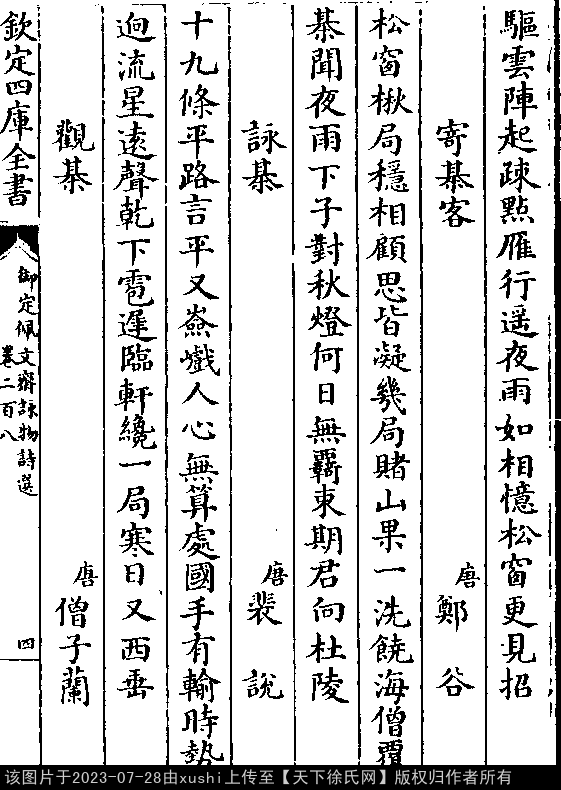 驅雲陣起疎點雁行遥夜雨如相憶松窗更見招
寄棊客
唐鄭谷
松窗楸局穩相顧思皆凝幾局賭山果一先饒海僧覆
棊聞夜雨下子對秋燈何日無羇束期君向杜陵
詠棊
唐裴說
十九條平路言平又嶮巇人心無算處國手有輸時勢
逈流星遠聲乾下雹遲臨軒纔一局寒日又西垂
觀棊
唐僧子蘭
欽定四庫全書
御定佩文齋詠物詩選
卷二百八
四
该图片于2023-07-28由xushi上传至【天下徐氏网】版权归作者所有